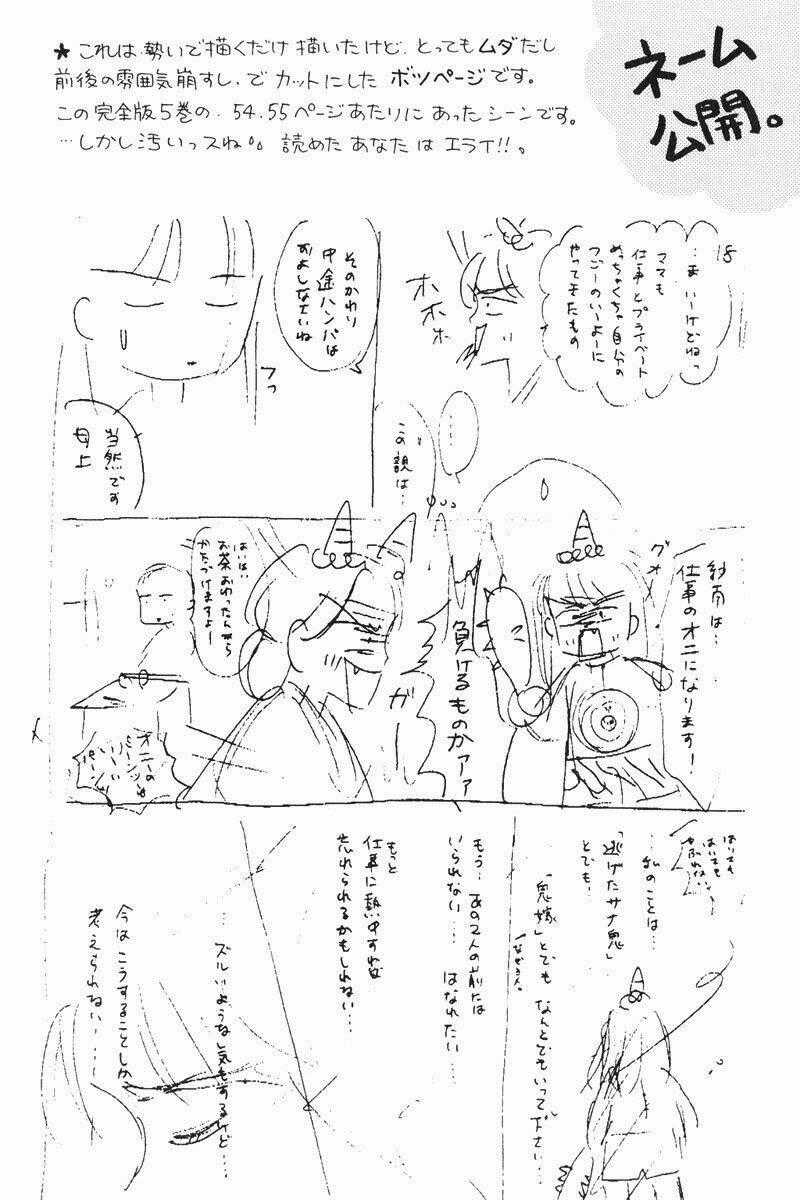 ネーム
公開。
★これは勢いで描くだけ描いたけど、とってもムダだし
前後の雰囲気崩すし、でカットにしたボツページです。
この完全版5巻の、54.55ページあたりにあったシーンです。
…しかし汚いっスね 読めたあなたはエライ!!。
18
…まいーけどねっ
ママも
仕事とプライベート
めっちゃくちゃ自分の
つごーのいーよーに
やってきたもの
ホホホ
そのかわり
中途ハンパは
およしなさいね
フっ
当然です
母上
……
この親は…
紗南は…
仕事のオニになります!
グオー
負けるものかァァァ
ガー
はいはい
お茶おわったんなら
かたづけますよー
オニーの
パンツは
いーい
パンツー
はいても
はいても
やぶれない
…私のことは…
「逃げたサナ鬼」
とでも
「鬼嫁」とでも なんとでもいって下さい…
もう…あの2人の前には
いられない… はなれたい…
もっと
仕事に熱中すれば
忘れられるかもしれない…
…ズルいような気もするけど…
今は こうすることしか
考えられない…